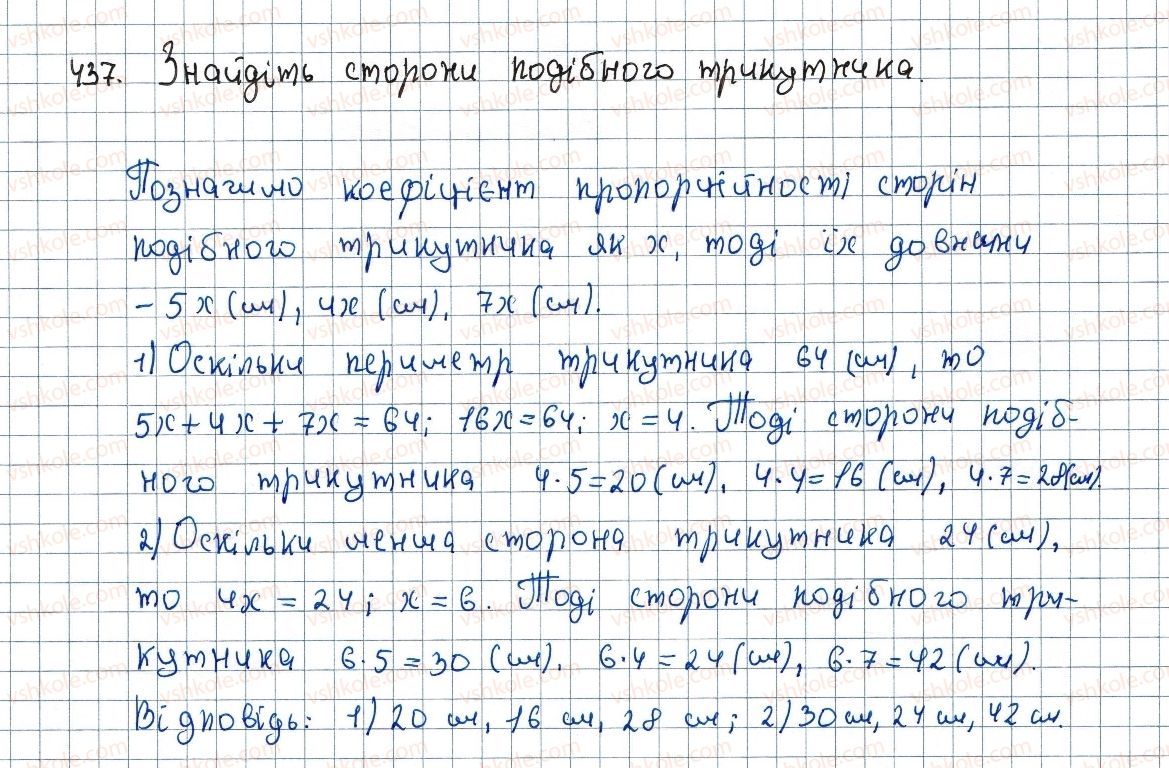 437. Знайдіть сторони подібного трикутника.
Позначимо коефіцієнт пропорційності сторін
подібного трикутника як x, тоді їх довжини
- 5x (см), 4x (см), 7x (см).
1) Оскільки периметр трикутника 64 (см), то
5x + 4x + 7x = 64; 16x = 64; x = 4. Тоді сторони подіб-
ного трикутника 4·5=20 (см), 4·4=16 (см), 4·7=28(см).
2) Оскільки менша сторона трикутника 24 (см),
то 4x = 24; x = 6. Тоді сторони подібного три-
кутника 6·5=30 (см), 6·4=24 (см), 6·7=42 (см).
Відповідь: 1) 20 см, 16 см, 28 см; 2) 30 см, 24 см, 42 см.